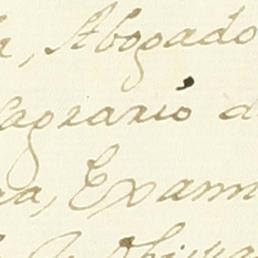 a, Abogado
Sagrario d
ra, Exam